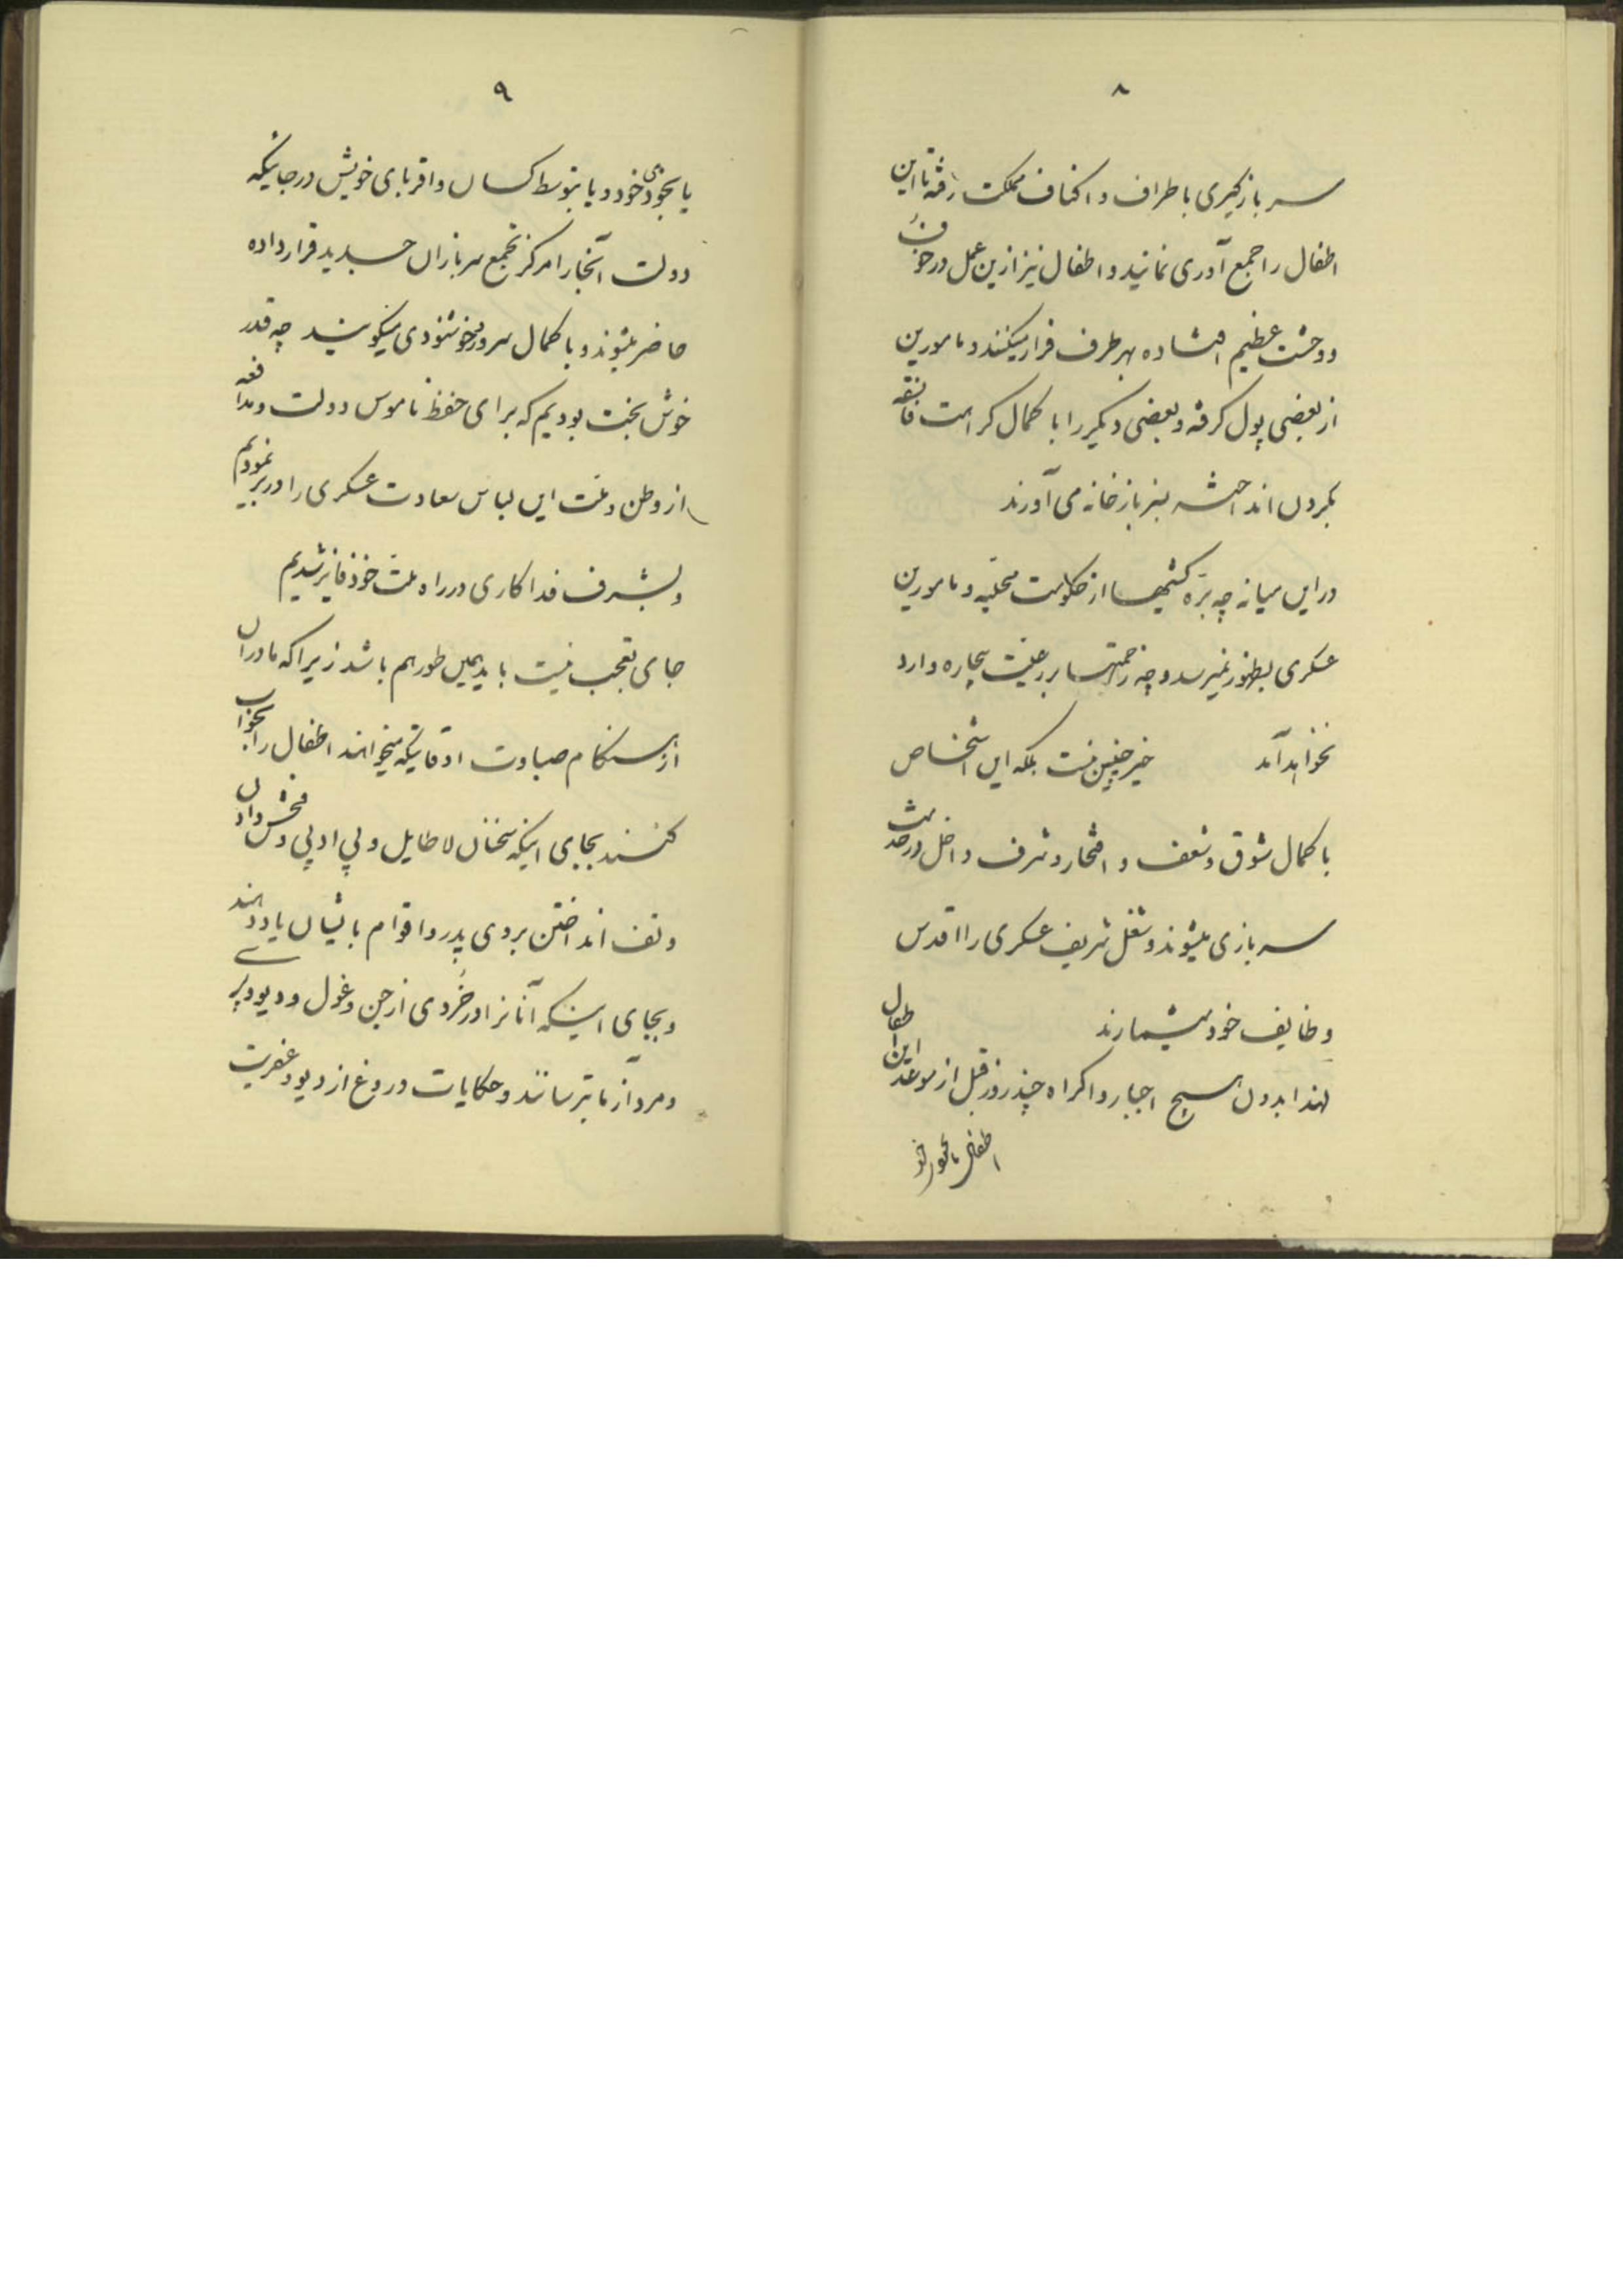 ۸
سربازگیری باطراف و اکناف مملکت رفته تا این
اطفال را جمع آوری نمایند و اطفال نیز ازین عمل در خوف
و وحشت عظیم افتاده بهر طرف فرار میکنند و مامورین
از بعضی پول گرفته و بعضی دیگر را با کمال کراهت
بگردن انداخته بسربازخانه می آورند
در این میانه چه بره کشیها از حکومت محلیه و مامورین
عسکری بظهور نمیرسد و چه زحمتها بر رعیت بیچاره وارد
نخواهد آمد خیر چنین نیست بلکه این اشخاص
با کمال شوق و شعف و افتخار و شرف داخل در خدمت
سربازی میشوند و شغل شریف عسکری را اقدس
وظایف خود میشمارند
لهذا بدون هیچ اجبار و اکراه چند روز قبل از موعد این اطفال
اطفال بخودی خود
۹
یا بخودی خود و یا بتوسط کسان و اقربای خویش در جائیکه
دولت آنجا را مرکز تجمع سربازان جدید قرار داده
حاضر میشوند و با کمال سرور و خوشنودی میگویند چه قدر
خوش بخت بودیم که برای حفظ ناموس دولت و مدافعه
از وطن و ملت این لباس سعادت عسکری را در بر نمودیم
و بشرف فداکاری در راه ملت خود فایز شدیم
جای تعجب نیست باید همین طور هم باشد زیرا که مادران
از هنگام صباوت اوقاتیکه میخواهند اطفال را بخواب
کنند بجای اینکه سخنان لاطایل و بی ادبی و فحش دادن
و تف انداختن بروی پدر و اقوام بایشان یاد دهند
و بجای اینکه آنانرا در خُردی از جن و غول و دیو و پری
و مردآزما بترسانند و حکایات دروغ از دیو و عفریت